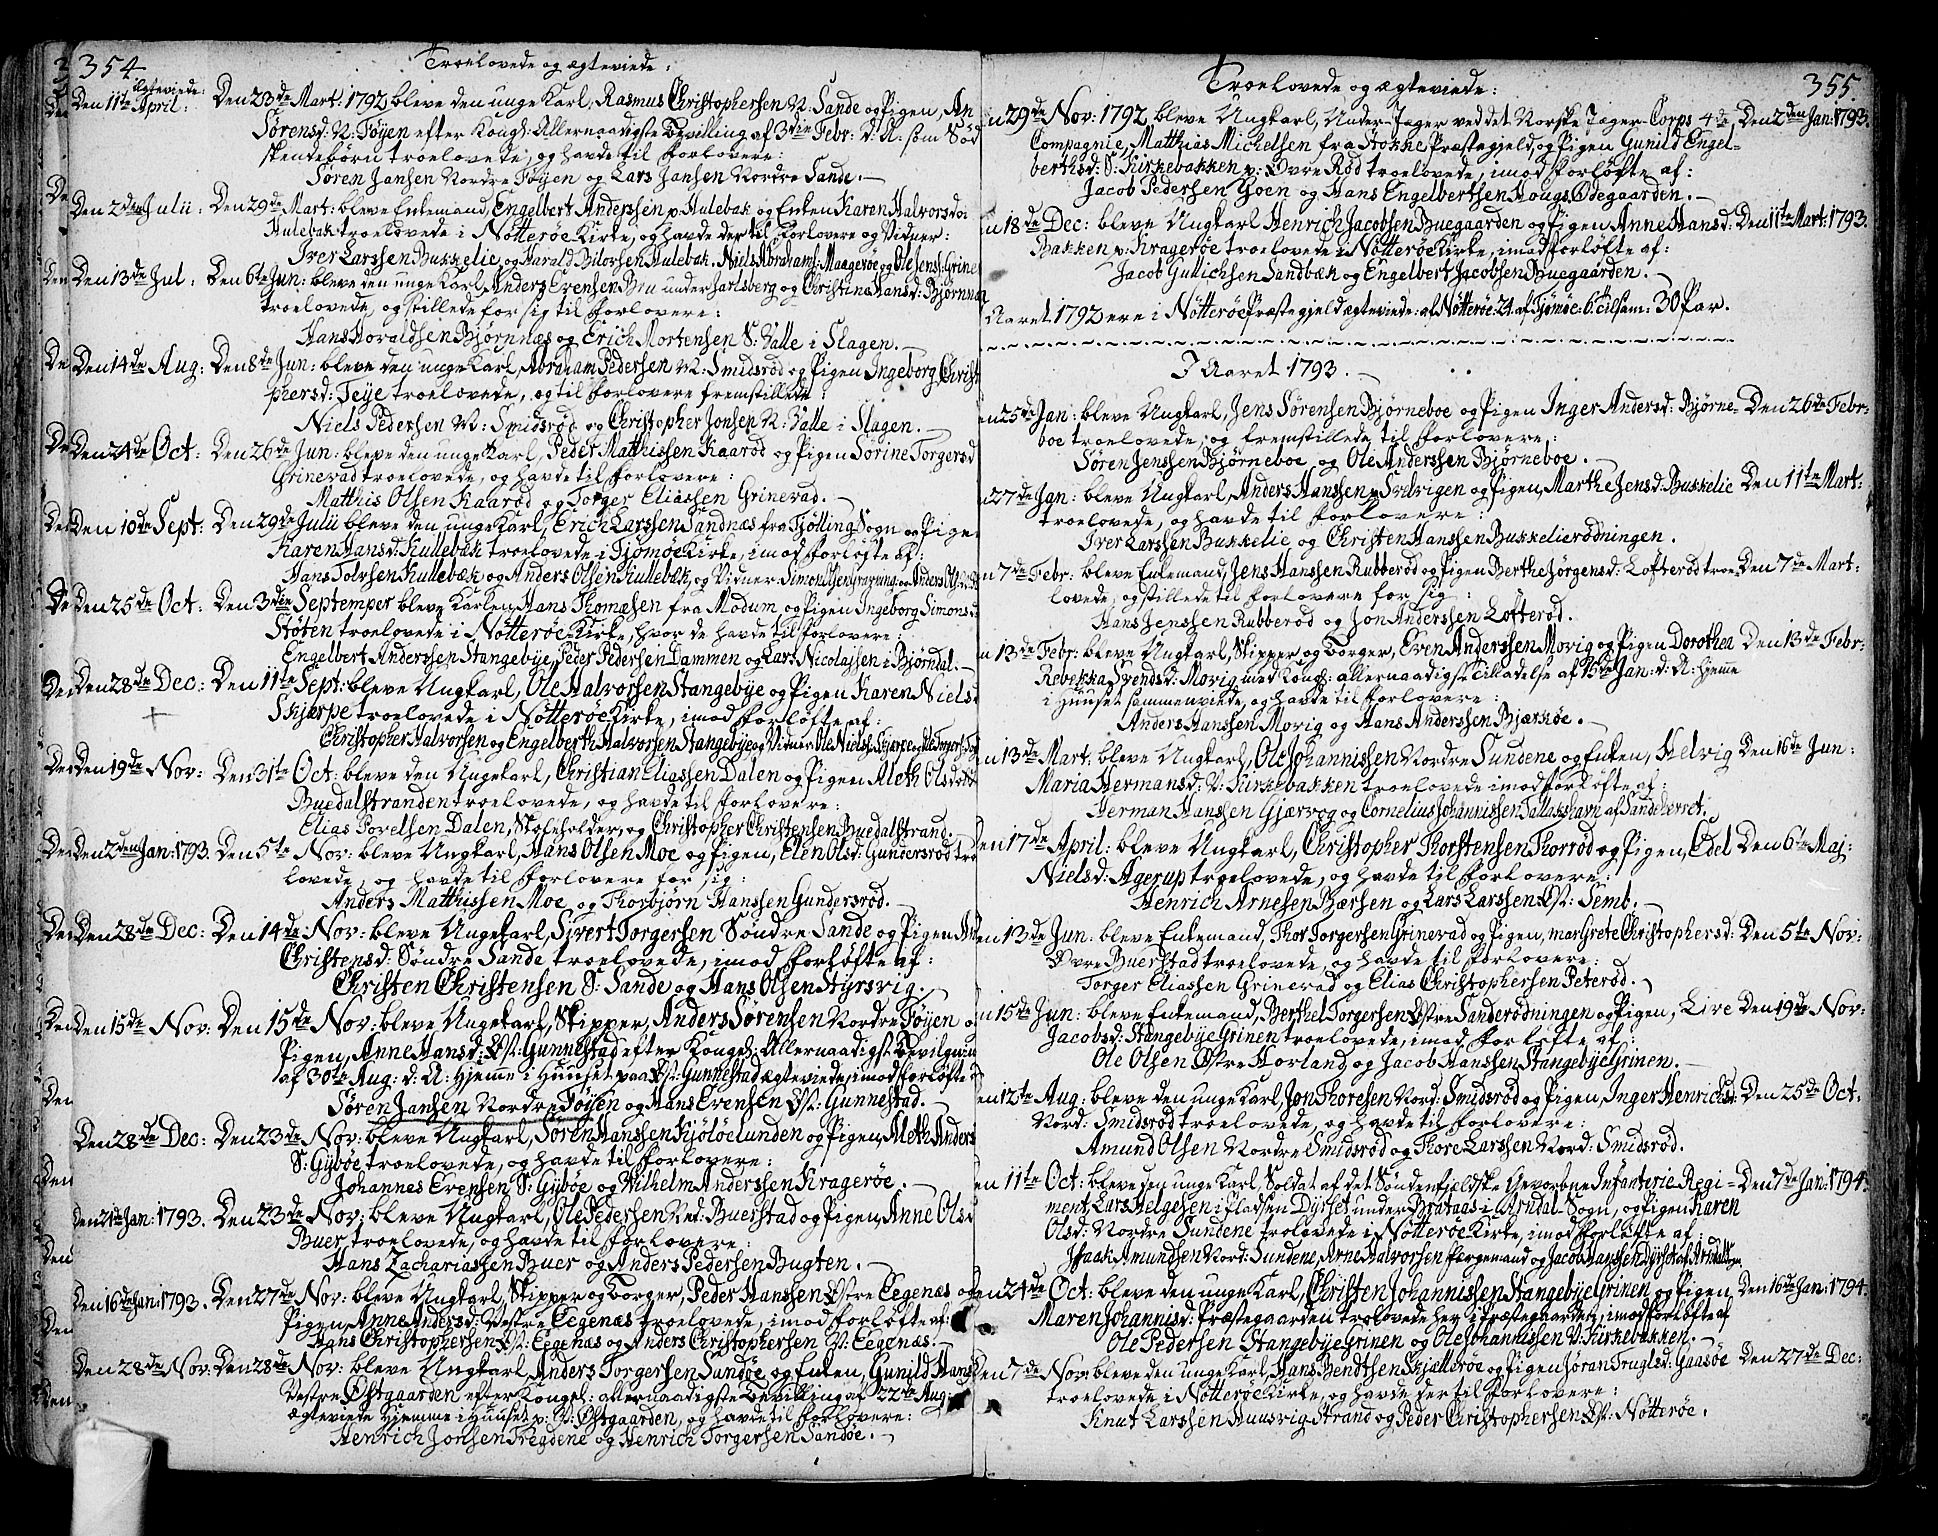 354. Troelovede og ægteviede:
ægteviede:
Den 11te April: Den 23de Mart: 1792 bleve den unge Karl, Rasmus Christophersen N: Sande og Pigen, An
Sørensd: N: Føyen efter Kongl: Allernaadigste Bevilling af 3die Febr: d: A: som Sød
skendebørn troelovede, og havde til Forlovere:
Søren Jansen Nordre Føyen og Lars Jansen Nordre Sande.
Den 2den Julii: Den 29de Mart: bleve Enkemand, Engelbert Anderssen p: Hulebak og Enken Karen Halvorsd:
Hulebak troelovede i Nøtterøe Kirke, og havde der til Forlovere og Vidner:
Iver Larssen Buskelie, og Harald Bilorsen Hulebak, Niels Abrahams: Maagerøe og Ole Jens: Grine
Den 13de Jul: Den 6te Jun: bleve den unge Karl, Anders Evensen Bru under Jarlsberg og Christine Hansd: Bjørnnæs
troelovede, og stillede for sig til Forlovere:
Hans Horaldsen Bjørnnæs og Erich Mortensen S: Valle i Slagen.
Den 14de Aug: Den 8de Jun: bleve den unge Karl, Abraham Pedersen N: Smidsrød og Pigen Ingeborg Christ
phersd: Teye troelovede, og til Forlovere fremstillede:
Niels Pedersen N: Smidsrød og Christopher Jonsen N: Valle i Slagen.
Den 24de Oct: Den 26de Jun: bleve den unge Karl, Peder Matthissen Kaarød og Pigen Sørine Torgersd
Grinerød troelovede, og havde til Forlovere:
Matthis Olsen Kaarød og Torger Eliassen Grinerød.
Den 10de Sept: Den 29de Julii bleve den unge Karl, Erich Larssen Sandnæs fra Tjølling Sogn og Pigen
Karen Hansd: Kullebæk troelovede i Tjømøe Kirke, imod Forløfte af:
Hans Tolvsen Kullebæk og Anders Olsen Kullebæk, og Vidner Simon Olsen
Den 25de Oct: Den 3die Septemper bleve Karlen Hans Thomæsen fra Modum og Pigen Ingeborg Simonsd
Støten troelovede i Nøtterøe Kirke, hvor de havde til Forlovere:
Engelbert Anderssen Stangebye, Peder Pedersen Dammen og Lars Nicolajsen i Bjørndal.
Den 28de Dec: Den 11te Sept: bleve Ungkarl, Ole Halvorsen Stangebye og Pigen Karen Nielsd
Skjærpe troelovede i Nøtterøe Kirke, imod Forløfte af:
Christopher Halvorsen og Engelberth Halvorsen Stangebye og Vidner Ole Niels: Skjærpe og
Den 19de Nov: Den 31te Oct: bleve den Ungekarl, Christian Eliassen Dalen og Pigen Aleth Olsd
Buedalstranden troelovede, og havde til Forlovere:
Elias Povelsen Dalen, Skoleholder, og Christopher Christensen Buedalstrand.
Den 2den Jan: 1793. Den 5te Nov: bleve Ungkarl, Hans Olsen Moe og Pigen, Elen Olsd: Gundersrød troe
lovede, og havde til Forlovere for sig:
Anders Matthissen Moe og Thorbjørn Hanssen Gundersrød.
Den 28de Dec: Den 14de Nov: bleve Ungekarl, Sivert Torgersen Søndre Sande og Pigen An
Christensd: Søndre Sande troelovede, imod Forløfte af:
Christen Christensen S: Sande og Hans Olsen Styrsvig.
Den 15de Nov: Den 15de Nov: bleve Ungekarl, Skipper, Anders Sørensen Nordre Føyen o
Pigen, Anne Hansd: Øst: Gunnestad efter Kongel: Allernaadigst Bevilgning
af 30te Aug: d: A: Hjemme i Huuset paa Øst: Gunnestad ægteviede, imod Forløfte
Søren Jansen Nordre Føyen og Hans Evensen Øst: Gunnestad.
Den 28de Dec: Den 23de Nov: bleve Ungkarl, Søren Hanssen Kjøløelunden og Pigen, Aleth Anders
S: Gybøe troelovede, og havde til Forlovere:
Johannes Evensen S: Gybøe og Wilhelm Anderssen Kragerøe.
Den 21de Jan: 1793. Den 23de Nov: bleve Ungkarl, Ole Pedersen Ned: Buerstad og Pigen, Anne Olsd
Buer troelovede, og havde til Forlovere:
Hans Zachariassen Buer og Anders Pedersen Bugten.
Den 16de Jan: 1793. Den 27de Nov: bleve Ungkarl, Skipper og Borger, Peder Hanssen Østre Eegenes o
Pigen, Anne Andersd: Vestre Eegenæs troelovede, imod Forløfte af:
Hans Christophersen Øst: Eegenæs og Anders Christophersen V: Eegenæs.
Den 28de Nov: Den 28de Nov: bleve Ungkarl, Anders Torgersen Sundøe og Enken, Gunild Hans
Vestre Østgaarden efter Kongel: allernaadigste Bevilling af 22de Aug:
ægteviede Hjemme i Huuset p: V: Østgaarden, og havde til Forlovere:
Henrich Jonsen Tregdene og Henrich Torgersen Sandøe.
Troelovede og ægteviede: 355.
en 29de Nov: 1792 bleve Ungkarl, Under-Jæger ved det Norske Jæger-Corps 4de Den 2den Jan: 1793.
Compagnie, Matthias Michelsen fra Stokke Præstegjeld, og Pigen Gunild Engel-
berthsd: S: Kirkebakken p: Øvre Rød troelovede, imod Forløfte af:
Jacob Pedersen Yoen og Hans Engelbertsen Hougs Ødegaarden.
en 18de Dec: bleve Ungkarl Henrich Jacobsen Buegaarden og Pigen Anne Hansd: Den 11te Mart: 1793.
Bakken p: Kragerøe troelovede i Nøtterøe Kirke, imod Forløfte af:
Jacob Gullichsen Sandbæk og Engelbert Jacobsen Buegaarden.
Aaret 1792 ere i Nøtterøe Præstegjeld ægteviede: af Nøtterøe: 24. af Tjømøe: 6. tilsam: 30 Par.
I Aaret 1793.
en 25de Jan: bleve Ungkarl, Jens Sørensen Bjørneboe og Pigen Inger Andersd: Bjørne- Den 26de Febr:
boe troelovede, og fremstillede til Forlovere:
Søren Jenssen Bjørneboe og Ole Anderssen Bjørneboe.
27de Jan: bleve Ungkarl, Anders Hanssen p: Svelvigen og Pigen, Marthe Jensd: Buskelie Den 11te Mart:
troelovede, og havde til Forlovere:
Iver Larssen Buskelie og Christen Hanssen Buskelierødningen.
n 7de Febr: bleve Enkemand, Jens Hanssen Rubberød og Pigen Berthe Jørgensd: Lofterød troe Den 7de Mart:
lovede, og stillede til Forlovere for sig:
Hans Jenssen Rubberød og Jon Anderssen Lofterød.
n 13de Febr: bleve Ungkarl, Skipper og Borger, Even Anderssen Movig og Pigen Dorothea Den 13de Febr:
Rebekka Svendsd: Movig med Kongl: allernaadigst Tilladelse af 15de Jan: d: A: hjemme
i Huuset sammenviede, og havde til Forlovere:
Anders Hanssen Movig og Hans Anderssen Bjærkøe.
n 13de Mart: bleve Ungkarl, Ole Johannissen Nordre Sundene og Enken, Helvig Den 16de Jun:
Maria Hermansd: N: Kirkebakken troelovede imod Forløfte af:
Herman Hanssen Gjærvog og Cornelius Johannissen Tallakshavn af Sandeherret.
en 17de April: bleve Ungkarl, Christopher Thorstensen Thorrød og Pigen, Edel Den 6te Maj:
Nielsd: Agerup troelovede, og havde til Forlovere:
Henrich Arnesen Bærsen og Lars Larssen Øst: Semb.
en 13de Jun: bleve Enkemand, Thor Torgersen Grinerød og Pigen, Margrete Christophersd: Den 5te Nov:
Øvre Buerstad troelovede, og havde til Forlovere:
Torger Eliassen Grinerød og Elias Christophersen Peterød.
n 15de Jun: bleve Enkemand, Berthel Torgersen Østre Sanderødningen og Pigen, Live Den 19de Nov:
Jacobsd: Stangebye Grinen troelovede, imod Forløfte af:
Ole Olsen Østre Horland og Jacob Hanssen Stangebye Grinen.
en 12te Aug: bleve den unge Karl, Jon Thoresen Nord: Smidsrød og Pigen, Inger Henrichsd: Den 25de Oct:
Nord: Smidsrød troelovede, og havde til Forlovere:
Amund Olsen Nordre Smidsrød og Thore Larssen Nord: Smidsrød.
en 11te Oct: bleve den unge Karl, Soldat af det Søndenfjeldske Gevorbne Infanterie Regi- Den 7de Jan: 1794.
ment, Lars Helgesen i Pladsen Dyrset under Brataas i Arndal Sogn, og Pigen Karen
Olsd: Nordre Sundene trolovede i Nøtterøe Kirke, imod Forløfte af:
Isaak Amundsen Nord: Sundene, Arne Halvorsen Færgemand og Jacob Hanssen Dyrset af
en 24de Oct: bleve den unge Karl, Christen Johannissen Stangebye Grinen og Pigen, Den 16de Jan: 1794.
Maren Johannisd: Præstegaarden trolovede her i Præstegaarden, imod Forløfte af
Ole Pedersen Stangebye Grinen og Ole Johannissen V: Kirkebakken.
en 7de Nov: bleve den unge Karl, Hans Bendtsen Skjællerøe og Pigen Jøran Truglsd: Gaasøe Den 27de Dec:
troelovede i Nøtterøe Kirke, og havde der til Forlovere:
Knut Larssen Huusvig Strand og Peder Christophersen Øst: Nøtterøe.